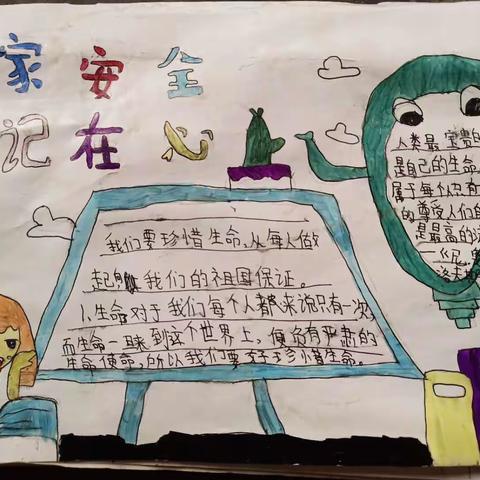 家安全
记在心
我们要珍惜生命,从每人做
起,我们的祖国保证。
1.生命对于我们每个人都来说只有一次,
而生命一旦来到这个世界上,便负有严肃的
生命使命,所以我们要好好珍惜生命。
人类最宝贵的
是自己的生命,
属于每个只有
的尊受人们的
是最高的